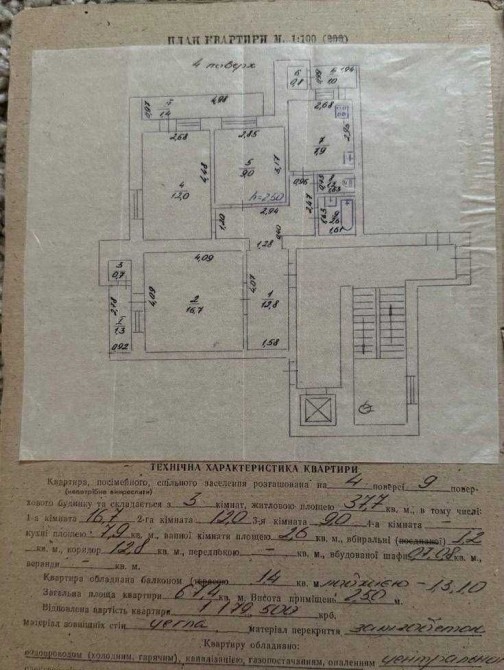 ПЛАН КВАРТИРИ М. 1:100
4 поверх
4,98
2,68
2,85
2,68
4,48
3,17
2,95
4
12,0
5
9,0
7
7,9
h=2,50
2,94
0,96
1,20
2,67
1,28
4,09
4,09
4,07
2
16,7
1
12,8
1,58
3
0,7
2,78
0,92
ТЕХНІЧНА ХАРАКТЕРИСТИКА КВАРТИРИ
Квартира, посімейного, спільного заселення розташована на 4 поверсі 9 повер-
(непотрібне викреслити)
хового будинку та складається з 3 кімнат, житловою площею 37,7 кв. м., в тому числі:
1-а кімната 16,7 2-га кімната 12,0 3-я кімната 9,0 4-а кімната —
кухні площею 7,9 кв. м., ванної кімнати площею 2,6 кв. м., вбиральні 1,2
кв. м., коридор 12,8 кв. м., передпокою — кв. м., вбудованої шафи кв. м.,
веранди — кв. м.
Квартира обладнана балконом 1,4 кв. м. лоджією – 1,3, 1,0
Загальна площа квартири 67,4 кв. м. Висота приміщень 2,50 м.
Відновлена вартість квартири крб.
матеріал зовнішніх стін цегла, матеріал перекриття залізобетон
Квартиру обладнано:
водопроводом (холодним, гарячим), каналізацією, газопостачанням, опаленням